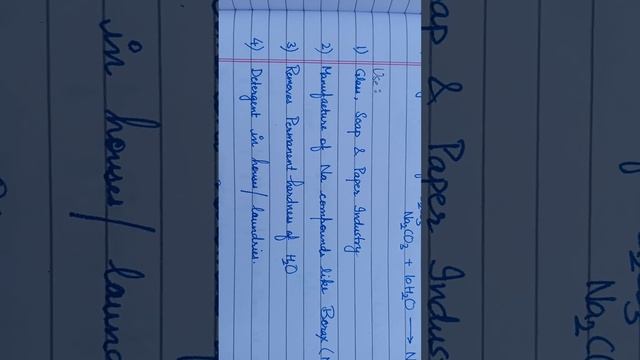 Na2CO3 + 10H2O →
Use:
1) Glass, Soap & Paper Industry
2) Manufacture of Na compounds like Borax (
3) Removes Permanent hardness of H2O
4) Detergent in houses/laundries.